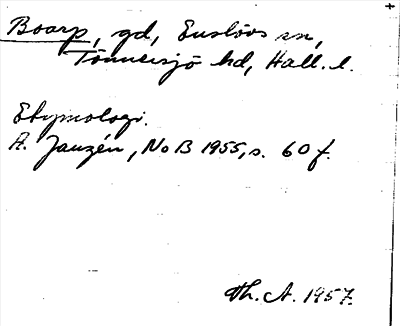 Boarp, gd, Enslövs sn,
Tönnersjö hd, Hall. l.
Etymologi.
A. Janzén, NoB 1955, s. 60 f.
Th. A. 1957.